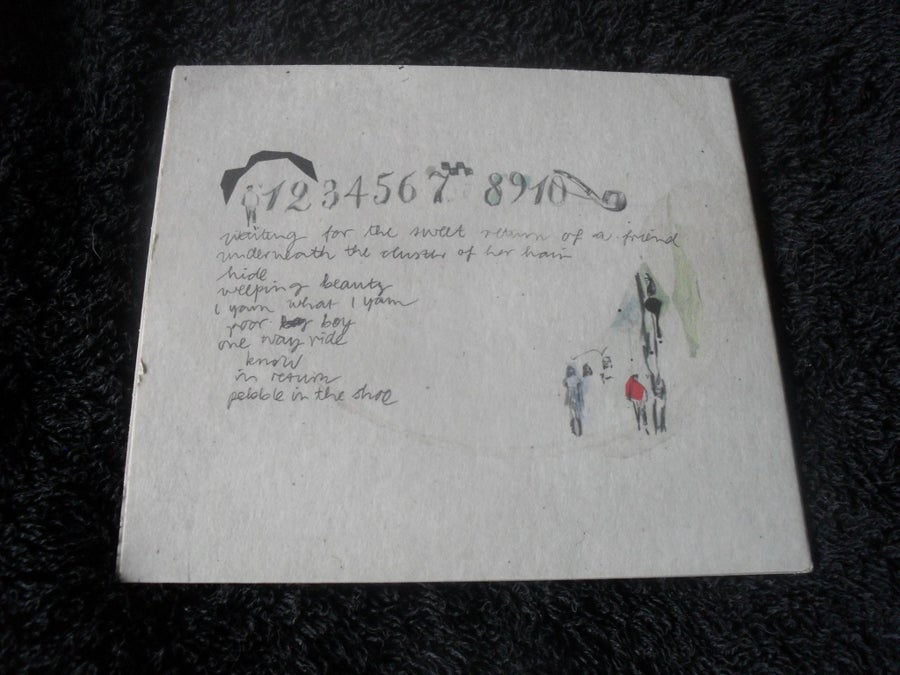 12345678910
waiting for the sweet return of a friend
underneath the cluster of her hair
hide
weeping beauty
I yam what I yam
poor boy
one way ride
know
in return
pebble in the shoe